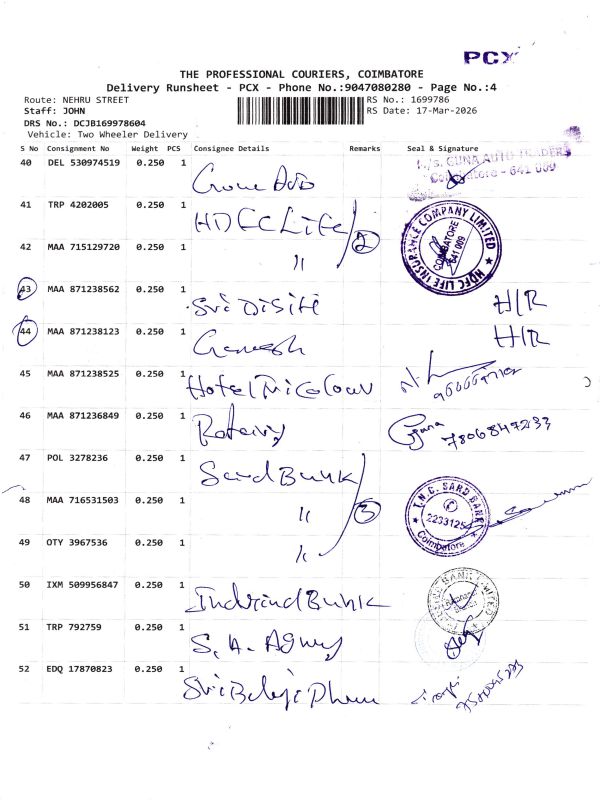 PCX
THE PROFESSIONAL COURIERS, COIMBATORE
Delivery Runsheet - PCX - Phone No.:9047080280 - Page No.:4
Route: NEHRU STREET RS No.: 1699786
Staff: JOHN RS Date: 17-Mar-2026
DRS No.: DCJB169978604
Vehicle: Two Wheeler Delivery
S No Consignment No Weight PCS Consignee Details Remarks Seal & Signature
M/s. GUNA AUTO TRADERS
Coimbatore - 641 009
40 DEL 530974519 0.250 1
41 TRP 4202005 0.250 1 HDFC Life 2
HDFC LIFE INSURANCE COMPANY LIMITED
COIMBATORE
641 009
42 MAA 715129720 0.250 1 "
43 MAA 871238562 0.250 1 H/R
44 MAA 871238123 0.250 1 Ganesh H/R
45 MAA 871238525 0.250 1 Hotel
46 MAA 871236849 0.250 1 7806847233
47 POL 3278236 0.250 1 Sard Bunk
48 MAA 716531503 0.250 1 " 3
T.N.G. SARD BANK
2233125
Coimbatore
49 OTY 3967536 0.250 1 "
50 IXM 509956847 0.250 1 Indusind Bunk
BANK LIMITED
51 TRP 792759 0.250 1 S.A. Agncy
52 EDQ 17870823 0.250 1 Sri Balaji